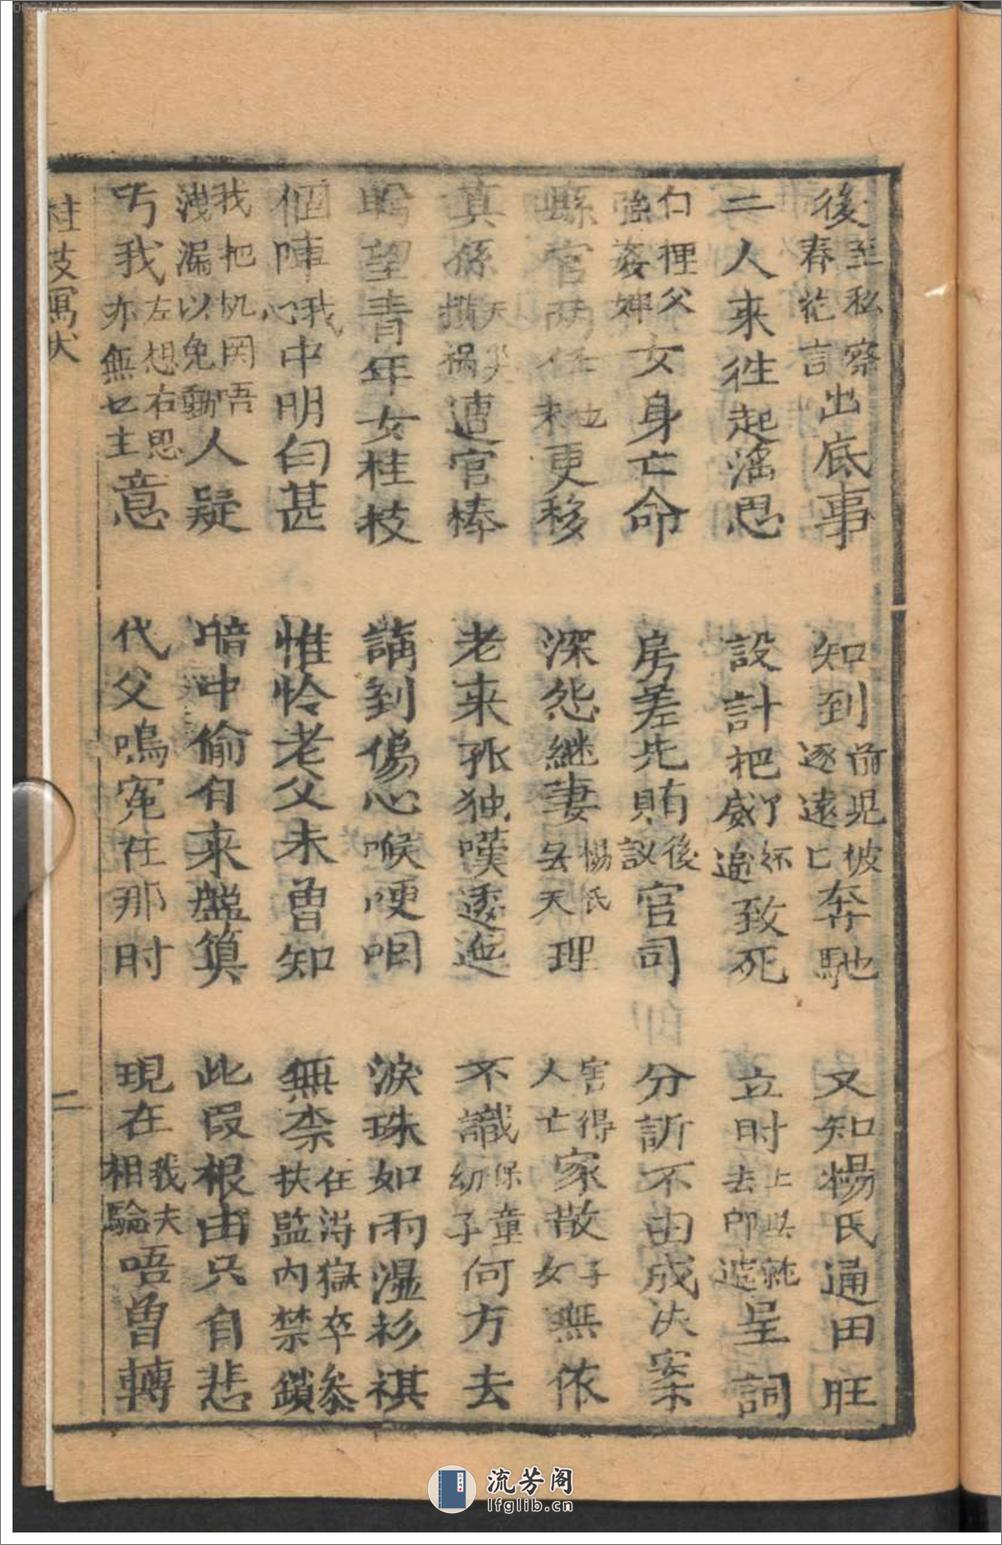 後至私察春花言出底事　知到前児被逐遠亡奔馳　又知楊氏通田旺
二人来往起滛思　設計把了威逼致死　立时去即呈詞
白裡父強姦婢女身亡命　房差先賄後議官司　分訴不由成决案
縣官两任也未更移　深怨継妻楊氏丟天理　害得人亡家散子女無依
真係天災攬祸遭官棒　老来孤独嘆透迤　不識保童幼子何方去
盼望青年女桂枝　講到傷心喉哽咽　淚珠如雨濕衫祺
個陣我心中明白甚　惟怜老父未曽知　無柰在得獄卒參扶監内禁鎖
我把机関唔洩漏以免動人疑　暗中偷自来盤算　此叚根由只自悲
亏我左想右思亦無乜主意　代父鳴寃在那时　現在我夫相驗唔曽轉
桂枝寫状　二
流芳阁
lfglib.cn